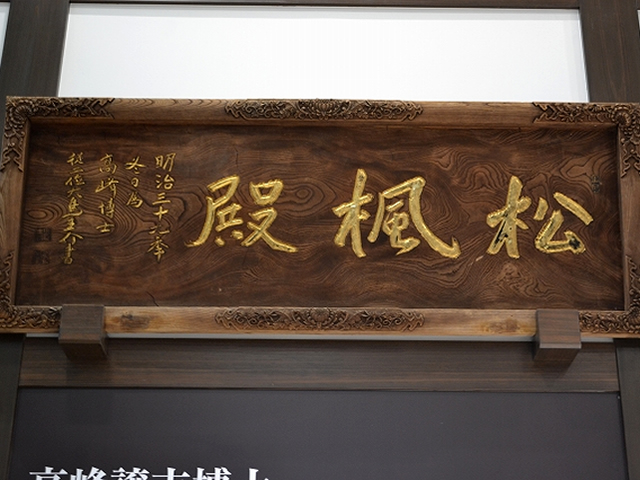 松楓殿
明治三十八季
冬日為
高峰博士
高峰譲吉博士